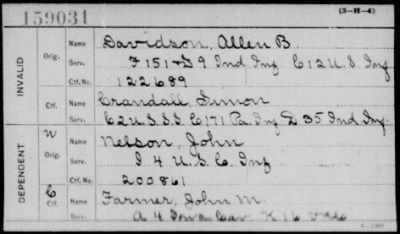 159031
(3-H-4)
INVALID
Orig.
Name Davidson, Allen B.
Serv. F 151 & D 9 Ind Inf C 12 U.S. Inf
Ctf. No. 122689
Ctf.
Name Crandall, Simon
Serv. C 2 U.S.S.S. C 171 Pa. Inf D 35 Ind Inf
DEPENDENT
W
Orig.
Name Nelson, John
Serv. I 4 U.S.C. Inf
Ctf. No. 200861
C
Ctf.
Name Farmer, John M.
Serv. A 4 Iowa Cav K 16 V.R.C